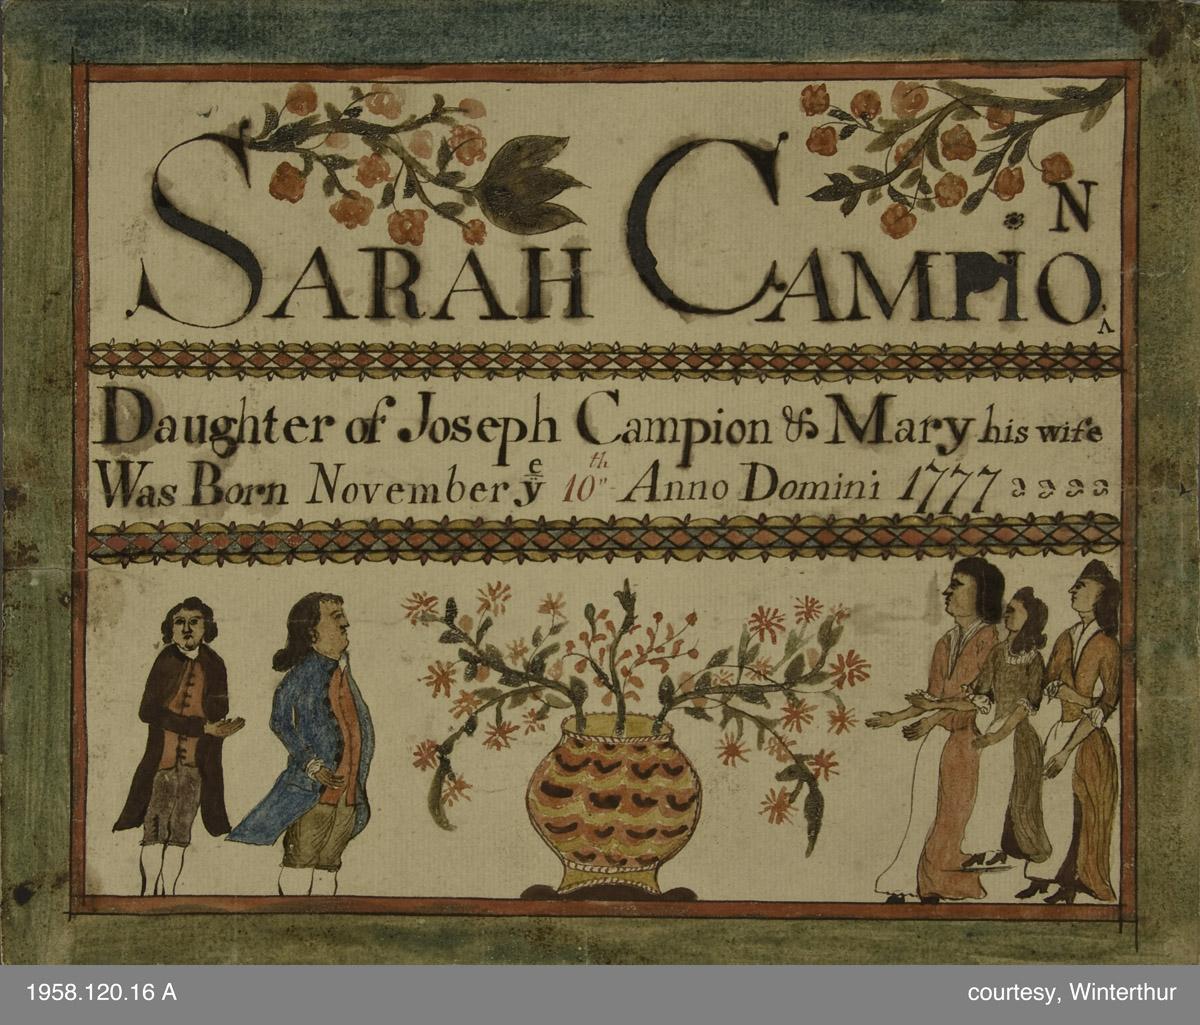 SARAH CAMPION
Daughter of Joseph Campion & Mary his wife
Was Born November yͤ 10th Anno Domini 1777
1958.120.16 A
courtesy, Winterthur